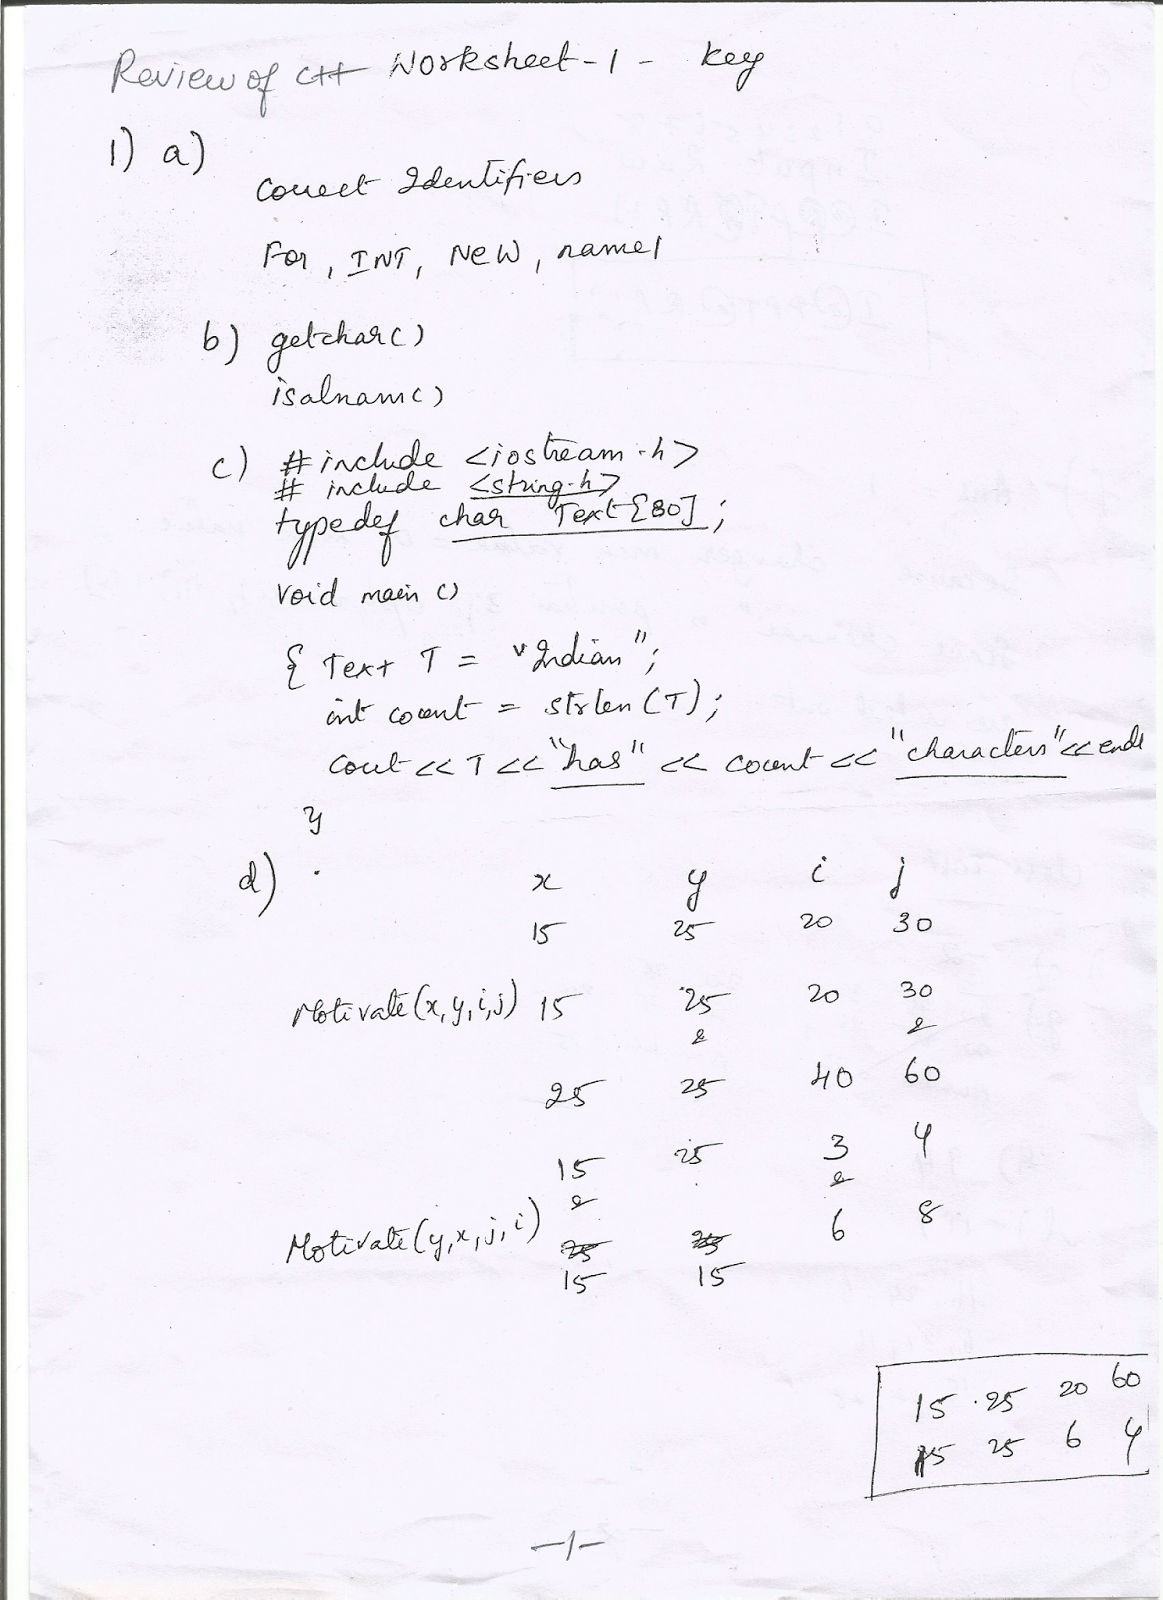 Review of C++ Worksheet-1 - key
1) a)
Correct Identifiers
For, INT, NeW, name1
b) getchar()
isalnam()
c) # include <iostream.h>
# include <string.h>
typedef char Text[80];
void main ()
{ Text T = "Indian";
int count = strlen(T);
cout << T << "has" << count << "characters" << endl
}
d) x y i j
15 25 20 30
Motivate(x,y,i,j) 15 25 20 30
2 2
25 25 40 60
15 25 3 4
2 2
Motivate(y,x,j,i) 6 8
25 25
15 15
15 25 20 60
15 25 6 4
-1-